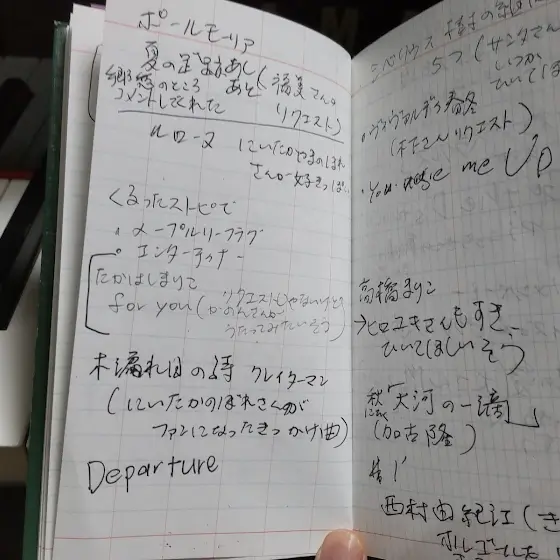 ポールモーリア
夏の足あと(福美さん。
あしあと リクエスト)
郷愁のところ
コメントしてくれた
ルローヌ にいたかやまのぼれ
さんが好きっぽい
くるったストピで
・メープルリーフラグ
・エンターティナー
たかはしまりこ
for you(リクエストじゃないけど
かのんさんが
うたってみたいそう)
木漏れ日の詩 クレイダーマン
(にいたかのぼれさんが
ファンになったきっかけ曲)
Departure
5つ(サンタさん
いつか
ひいてほ
・ヴァヴァルディ春
(木たさんリクエスト)
・You raise me Up
高橋まりこ
→ヒロユキさんもすき、
ひいてほしいそう
秋に「大河の一滴」
(加古隆)
西村由紀江(き
オルゴール